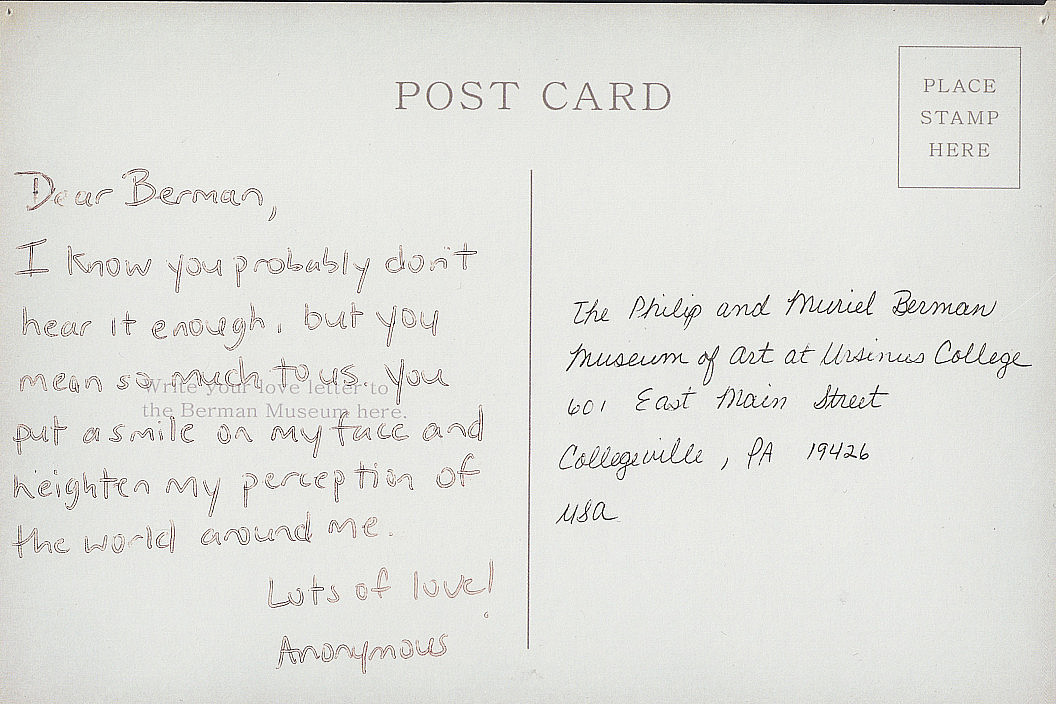 POST CARD
PLACE
STAMP
HERE
Dear Berman,
I know you probably don't
hear it enough, but you
mean so much to us. You
put a smile on my face and
heighten my perception of
the world around me.
Lots of love!
Anonymous
Write your love letter to
the Berman Museum here.
The Philip and Muriel Berman
Museum of Art at Ursinus College
601 East Main Street
Collegeville, PA 19426
USA